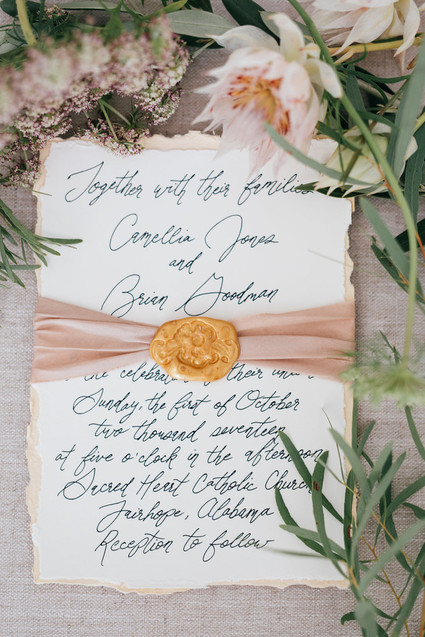 Together with their families
Camellia Jones
and
Brian Goodman
the celebration of their union
Sunday, the first of October
two thousand seventeen
at five o'clock in the afternoon
Sacred Heart Catholic Church
Fairhope, Alabama
Reception to follow